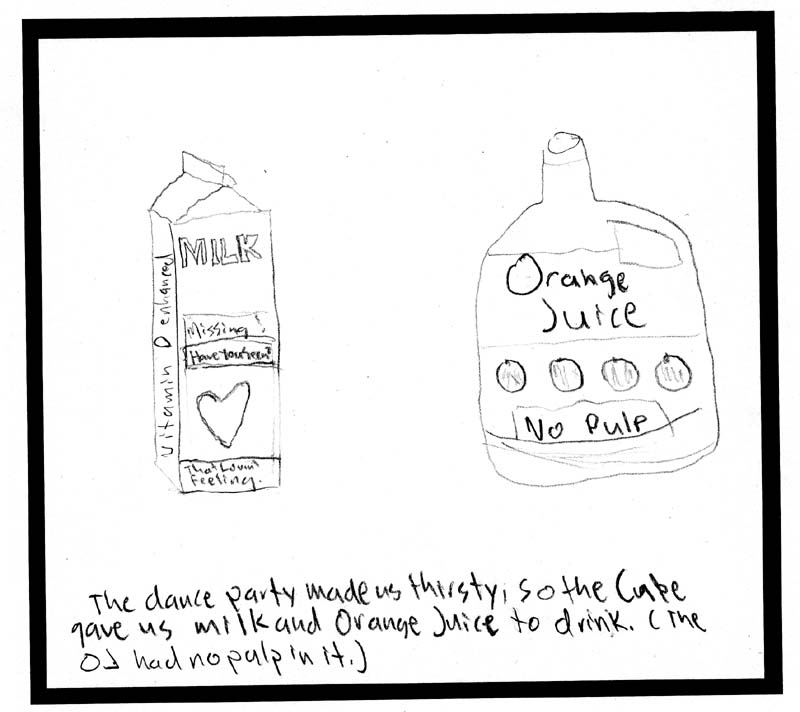 MILK
Vitamin D enhanced
Missing!
Have You Seen?
That Lovin'
Feeling.
Orange
Juice
No Pulp
The dance party made us thirsty, so the Cube
gave us milk and Orange Juice to drink. (The
OJ had no pulp in it.)